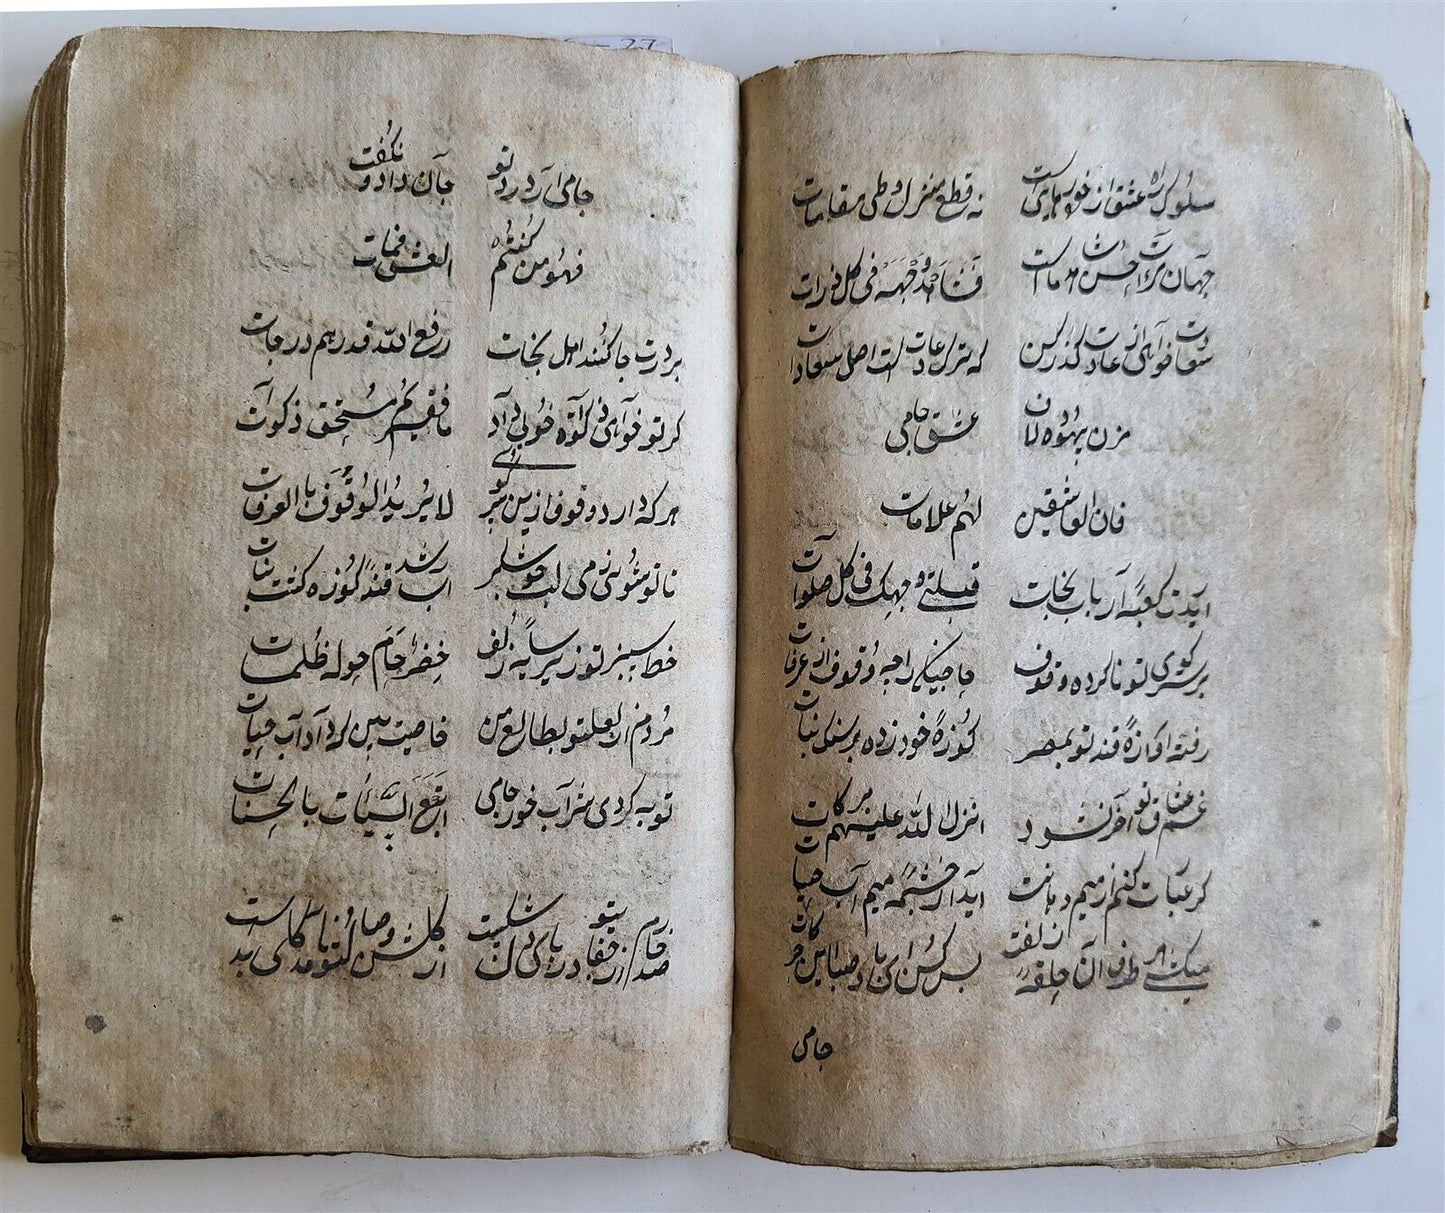 سلوک راه عشق از خود رهایی است نه قطع منزل و طی مقامات
جهان مرآت حسن شاهد ماست فشاهد وجهه فی کل ذرات
سعادت خواهی از عادت گذر کن که ترک عادت است اصل سعادات
مزن بیهوده لاف عشق جامی
فان العاشقین لهم علامات
ای درت کعبه ارباب نجات قبلتی وجهک فی کل صلوات
بر سر کوی تو ناکرده وقوف حاجیان را چه وقوف از عرفات
رفته آوازه قند تو بمصر کوزه خود زده بر سنگ نبات
غم عشاق تو آخر نشود انزل الله علیهم برکات
گر عبارت کنم از میم دهانت آید از چشمه میم آب حیات
میکشی هر طرفی آن حلقه زلفت بس کن ای باد صبا این حرکات
جامی
جامی از درد تو جان داد و نگفت
فهو من کتم العشق فمات
بر درت جا کنند اهل نجات رفع الله قدرهم درجات
گر تو خواهی زکوة خوبی داد ما فقیریم مستحق زکوت
هر که دارد وقوف ازین سر کوی لا یرید الوقوف بالعرفات
تا تو شستی ز می لب چو شکر آب شد قند کوزه گشت نبات
خط سبز تو زیر سایه زلف خضر جام حوله ظلمات
مردم از لعل تو بطالع من خاصیت بین که داد آب حیات
توبه کردی شراب خور جامی اتبع السیئات بالحسنات
صد خارم از جفا بتو در پای دل شکست از گلشن وصال تو نا